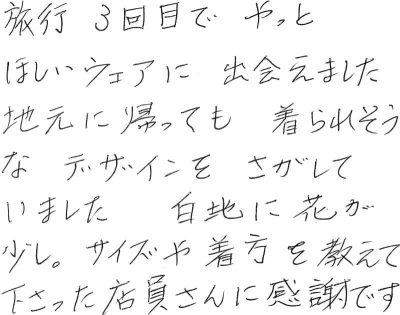 旅行 3回目で やっと
ほしいウェアに 出会えました
地元に帰っても 着られそう
な デザインを さがして
いました 白地に花が
少し。サイズや着方を教えて
下さった店員さんに感謝です